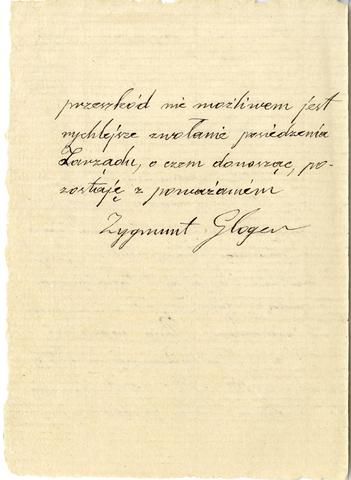 przeszkód nie możliwem jest
rychlejsze zwołanie posiedzenia
Zarządu, o czem donosząc, po-
zostaję z poważaniem
Zygmunt Gloger